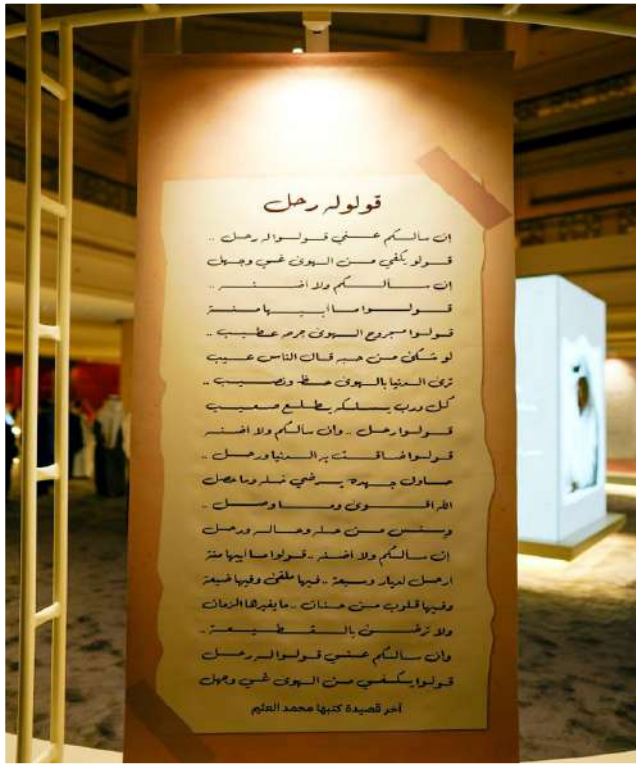 قولوله رحل
إن سالكم عني قولوا له رحل ..
قولو يكفي من الهوى غمي وجهل
إن سألكم ولا اضنه ..
قولوا ما ابيها منة
قولوا مجروح الهوى جرحه عطيب ..
لو شكى من حبه قال الناس عيب
ترى الدنيا بالهوى حظ ونصيب ..
كل درب يسلكه يطلع صعيب
قولوا رحل .. وان سالكم ولا اضنه
قولوا ضاقت به الدنيا ورحل ..
حاول جهده يرضي خله وما حصل
الله اقوى وما وصل ..
ويئس من حله وحاله ورحل
إن سالكم ولا اضنه .. قولوا ما ابيها منة
ارحل لديار وسيعة .. فيها ملقى وفيها ضيعة
وفيها قلوب من حنان .. ما يغيرها الزمان
ولا ترضى بالقطيعة ..
وان سالكم عني قولوا له رحل
قولوا يكفي من الهوى غمي وجهل
آخر قصيدة كتبها محمد العثيم